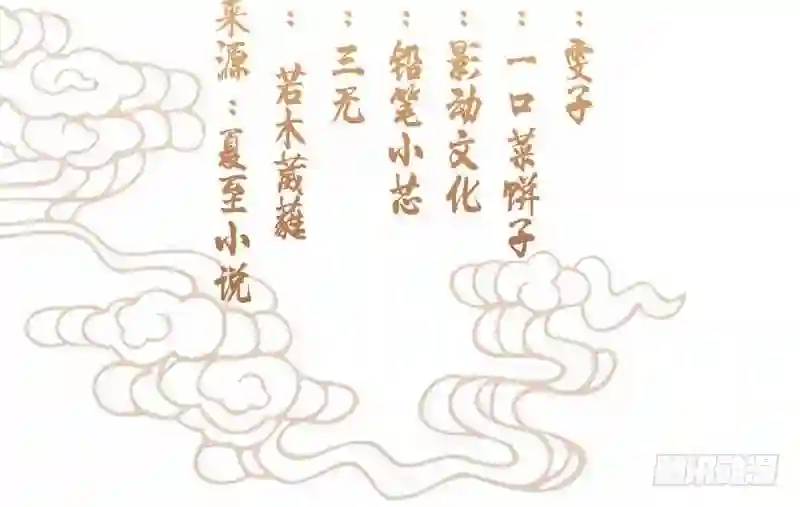 ：雯子
：一口菜饼子
：影动文化
：铅笔小芯
：三无
：若木葳蕤
来源：夏至小说